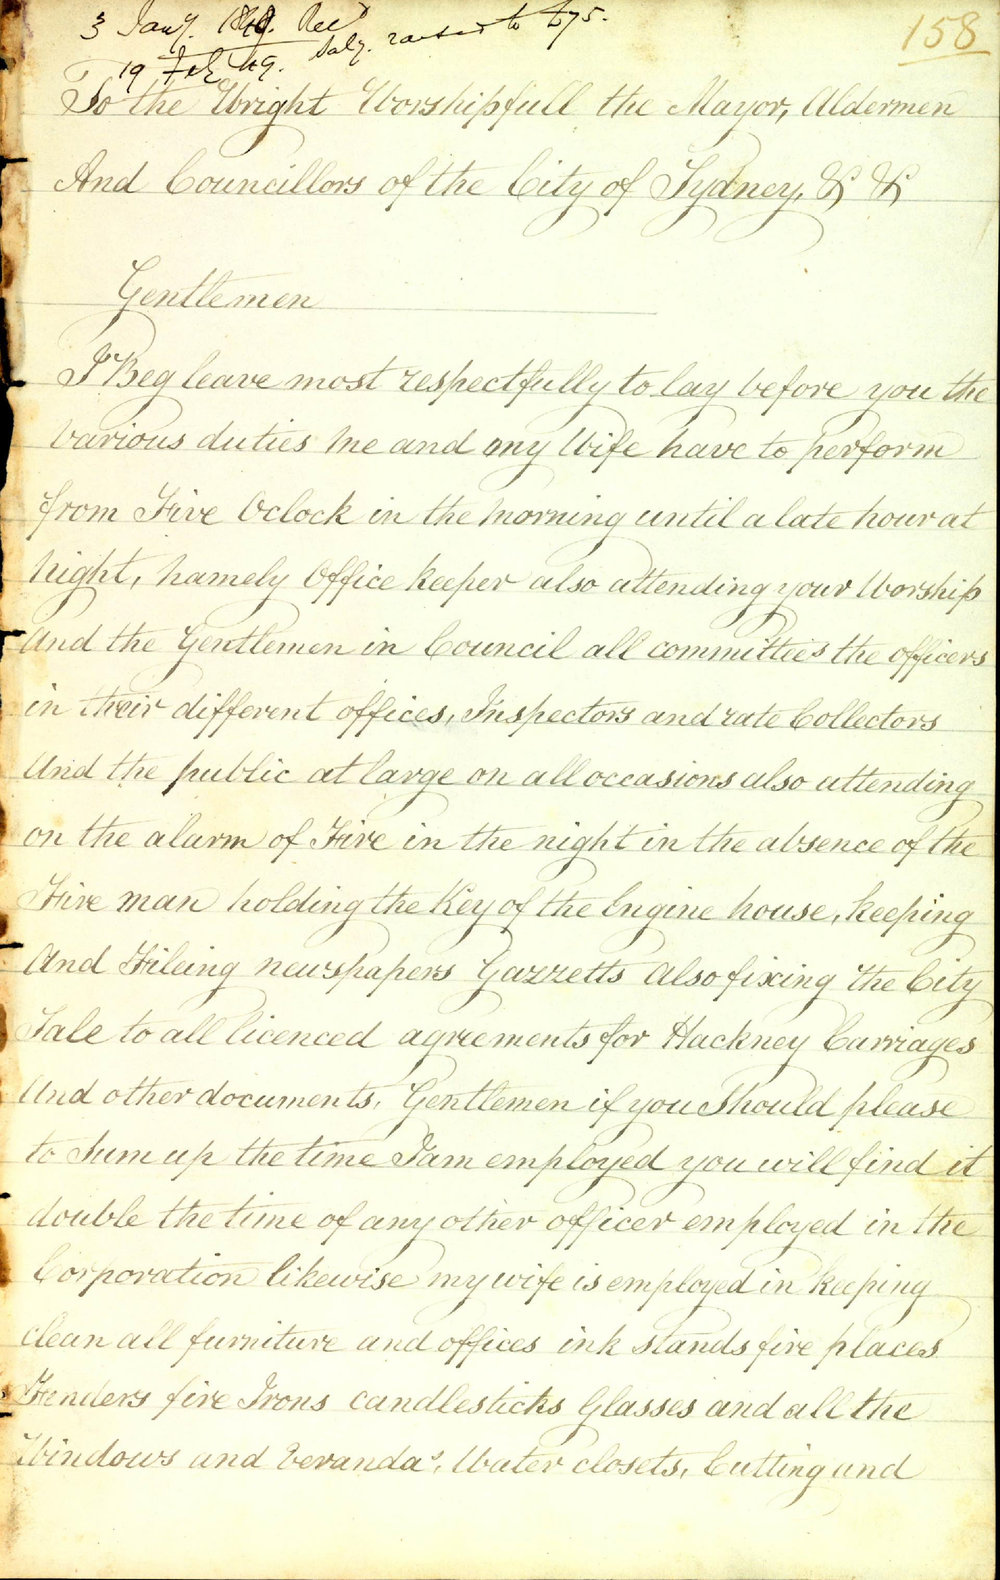 3 Jany. 1849. Recd
19 Feby 49. Saly. raised to £75.
158
To the Wright Worshipfull the Mayor, Aldermen
And Councillors of the City of Sydney, &c &c
Gentlemen
I Beg leave most respectfully to lay before you the
various duties me and my Wife have to perform
from Five Oclock in the Morning until a late hour at
Night, Namely Office Keeper also attending your Worship
And the Gentlemen in Council all committies the officers
in their different offices, Inspectors and rate Collectors
And the public at large on all occasions also attending
on the alarm of Fire in the night in the absence of the
Fire man holding the Key of the Engine house, keeping
And Fileing newspapers Gazzetts Also fixing the City
Sale to all licenced agreements for Hackney Carriages
And other documents, Gentlemen if you Should please
to Sum up the time I am employed you will find it
double the time of any other officer employed in the
Corporation likewise my wife is employed in keeping
clean all furniture and offices ink stands fire places
Fenders fire Irons candlesticks Glasses and all the
Windows and Veranda's, Water closets, Cutting and